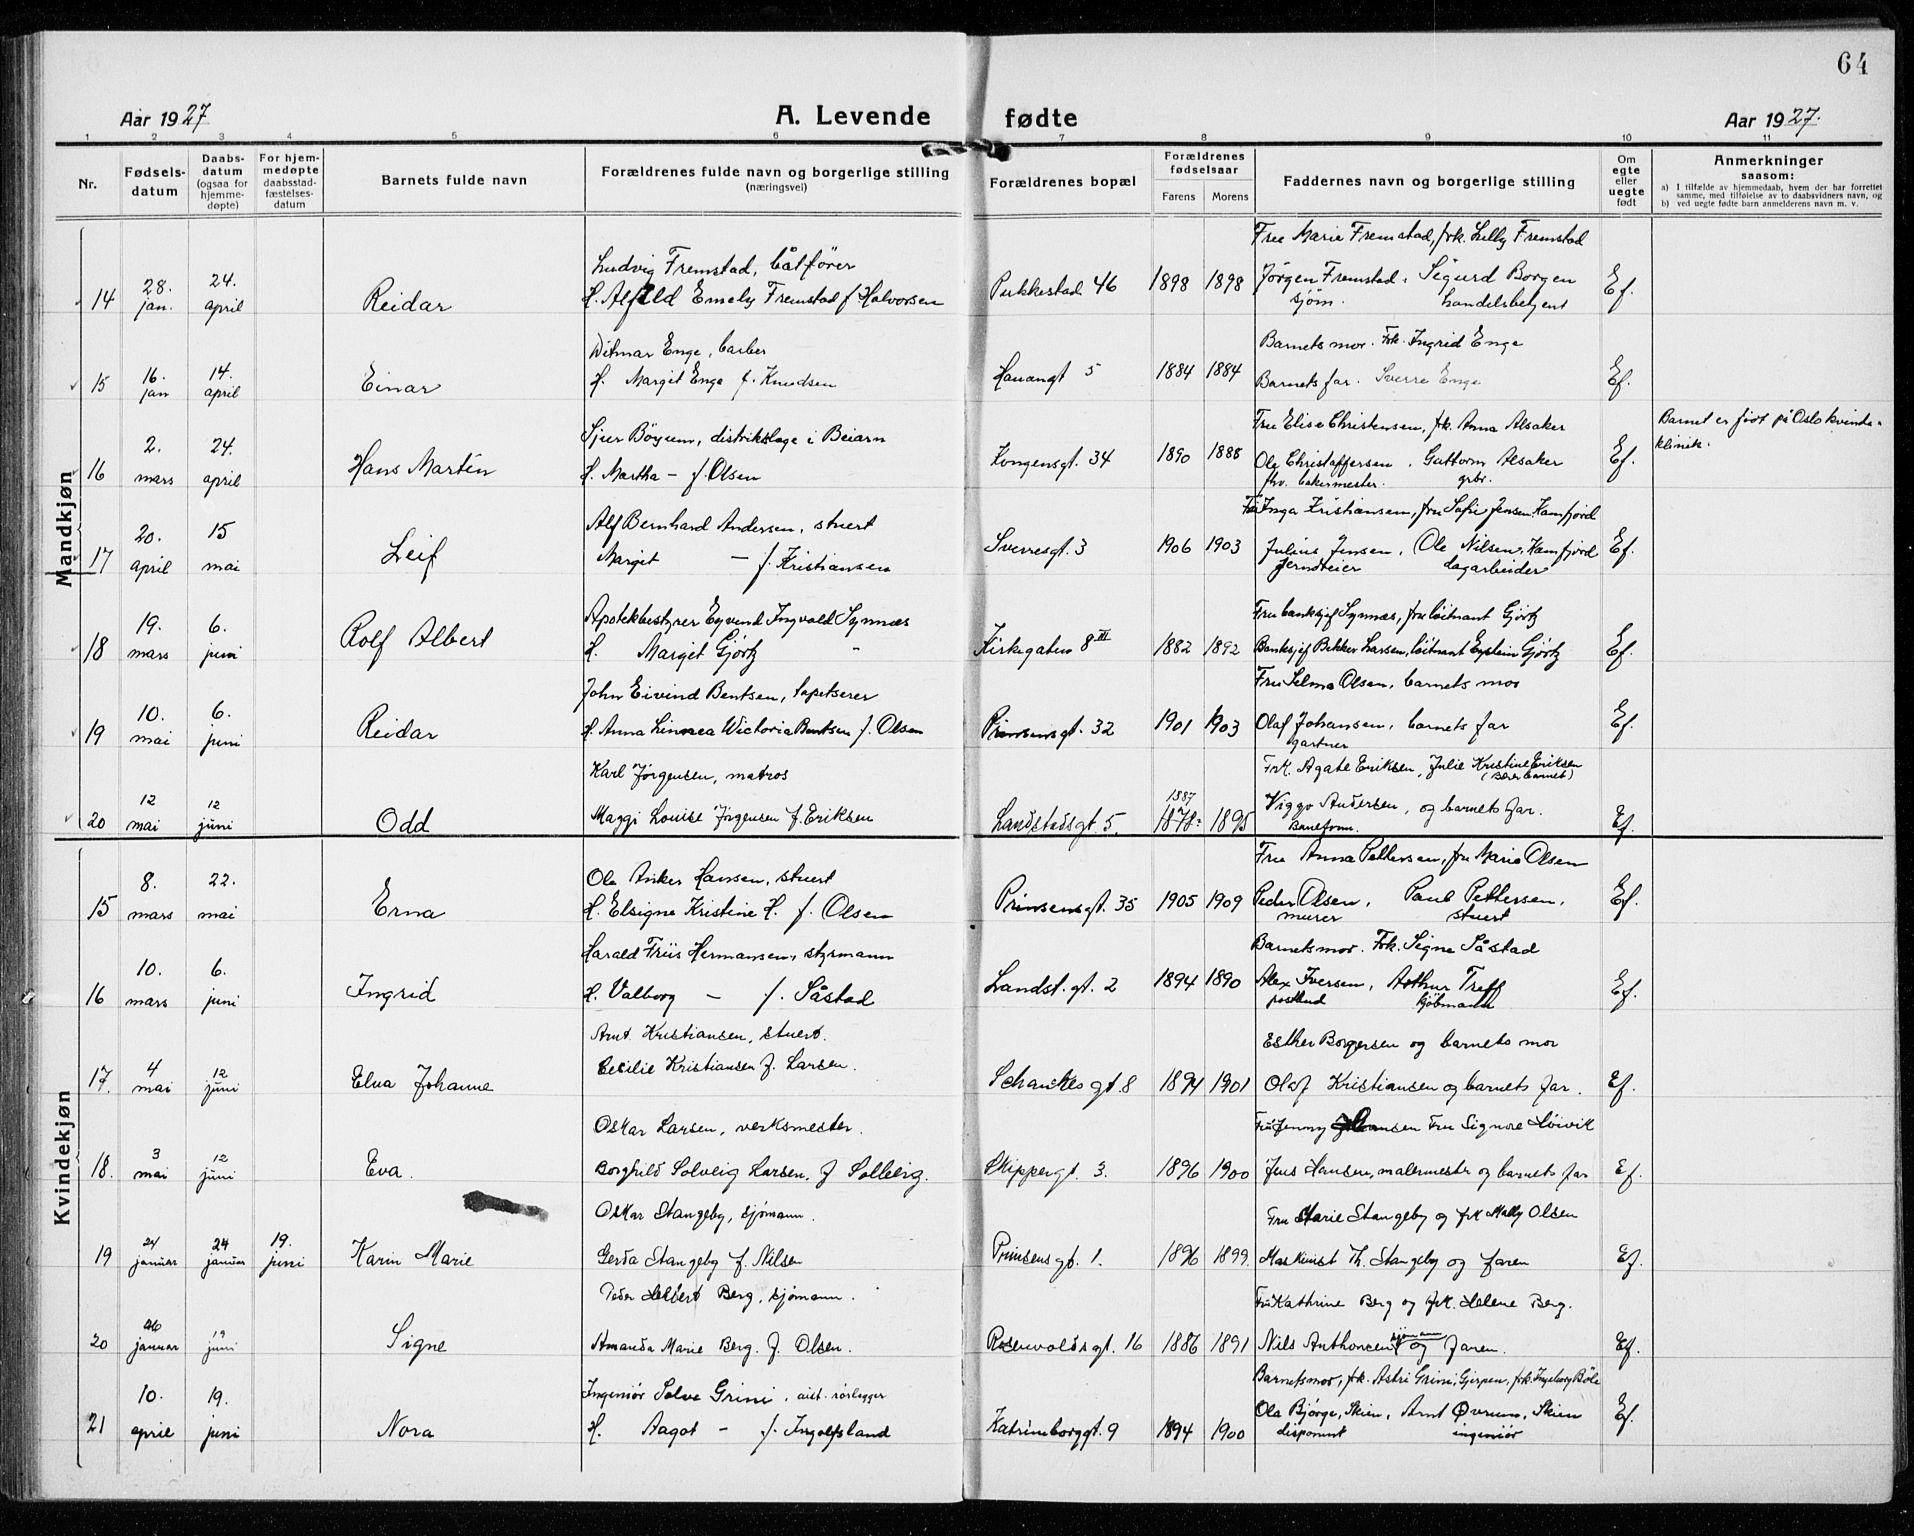 64
Aar 1927
A. Levende
fødte
Aar 1927.
1 2 3 4 5 6 7 8 9 10 11
Nr.
Fødsels-
datum
Daabs-
datum
(ogsaa for
hjemme-
døpte)
For hjem-
medøpte
daabsstad-
fæstelses-
datum
Barnets fulde navn
Forældrenes fulde navn og borgerlige stilling
(næringsvei)
Forældrenes bopæl
Forældrenes
fødselsaar
Farens Morens
Faddernes navn og borgerlige stilling
Om
egte
eller
uegte
født
Anmerkninger
saasom:
a) I tilfælde av hjemmedaab, hvem der har forrettet
samme, med tilføielse av to daabsvidners navn, og
b) ved uegte fødte barn anmelderens navn m. v.
Mandkjøn
Ludvig Fremstad, båtfører
Fru Marie Fremstad, frk. Lilly Fremstad
14 28. jan. 24. april Reidar H. Alfild Emely Fremstad f. Halvorsen Pukkestad 46 1898 1898 Jörgen Fremstad, Sigurd Borgen Ef.
sjøm. handelsbetjent
Ditmar Enge, barber
Barnets mor. Frk. Ingrid Enge
15 16. jan 14. april Einar H. Margit Enge f. Knudsen Hauangt 5 1884 1884 Barnets far. Sverre Enge Ef.
Sjur Böyum, distrikslæge i Beiarn
Fru Elise Christensen, frk. Anna Alsaker
Barnet er födt på Oslo kvinde-
klinik.
16 2. mars 24. april Hans Martin H. Martha — f. Olsen Kongensgt. 34 1890 1888 Ole Christoffersen, Guttorm Alsaker Ef.
fhv. bakermester. grbr.
Alf Bernhard Andersen, stuert
Fru Inga Kristiansen, fru Sofie Jensen, Kamfjord
17 20. april 15 mai Leif Margit — f. Kristiansen Sverresgt. 3 1906 1903 Julius Jensen, Ole Nilsen, Kamfjord Ef.
dagarbeider
Apotekbestyrer Eyvind Ingvald Synnæs
Fru banksjef Synnæs, fru löitnant Gjörtz
18 19. mars 6. juni Rolf Albert H. Margit Gjörtz " Kirkegaten 8 III 1882 1892 Banksjef Bekker Larsen, löitnant Eystein Gjörtz Ef.
John Eivind Bentsen, tapetserer
Fru Selma Olsen, barnets mor
19 10. mai 6. juni Reidar H. Anna Linnea Wictoria Bentsen f. Olsen Prinsensgt. 32 1901 1903 Olaf Johansen, barnets far Ef.
gartner
Karl Jørgensen, matros
Frk. Agate Eriksen, Julie Kristine Eriksen
(bærer barnet)
20 12 mai 12 juni Odd Maggi Louise Jørgensen f. Eriksen Landstadsgt. 5. 1887 1878 1895 Viggo Andersen, og barnets far. Ef.
Baneform.
Kvindekjøn
Ole Anker Hansen, stuert
Fru Anna Pettersen, fru Marie Olsen
15 8. mars 22. mai Erna H. Elsigne Kristine H. f. Olsen Prinsensgt. 35 1905 1909 Peder Olsen, Paul Pettersen, Ef.
murer stuert
Harald Friis Hermansen, styrmann
Barnets mor. Frk. Signe Såstad
16 10. mars 6. juni Ingrid H. Valborg — f. Såstad Landst. gt. 2 1894 1890 Alex Iversen, Arthur Treff Ef.
postbud kjöbmann
Arnt Kristiansen, stuert.
Esther Borgersen og barnets mor
17. 4 mai 12 juni Elna Johanne Cecilie Kristiansen f. Larsen. Schankes gt. 8 1894 1901 Olaf Kristiansen og barnets far. Ef.
Oskar Larsen, verksmester.
Fru Jenny Hansen Fru Signore Løivik
18. 3 mai 12 juni Eva. Borghild Solveig Larsen, f Solberg. Skippergt. 3. 1896 1900 Jens Hansen, malermester og barnets far Ef.
Oskar Stangeby, sjømann.
Fru Marie Stangeby og frk Mally Olsen
19 24 januar 24 januar 19. juni Karin Marie Gerda Stangeby f. Nilsen Prinsensgt. 1. 1896 1899. Maskinist Th. Stangeby og faren Ef.
Peder Herbert Berg, sjømann.
Fru Kathrine Berg og frk. Helene Berg.
20 26 januar 19 juni Signe Amanda Marie Berg. f. Olsen. Rosenvolds gt. 16 1886 1891 Nils Anthonsen sjømann og faren. Ef.
Ingeniør Solve Grini, aut. rörlegger
Barnets mor, frk. Astri Grini, Gjerpen, frk. Ingeborg Böle
21 10. april 19. juni Nora H. Aagot — f. Ingolfsland Katrineborggt. 9 1894 1900 Ola Bjørge, Skien, Arnt Øvrum, Skien Ef.
disponent ingeniör